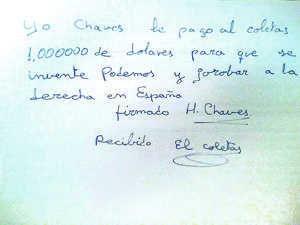 Yo Chaves le pago al coletas
1,000000 de dolares para que se
invente Podemos y jorobar a la
derecha en España
firmado H. Chaves
Recibido El coletas